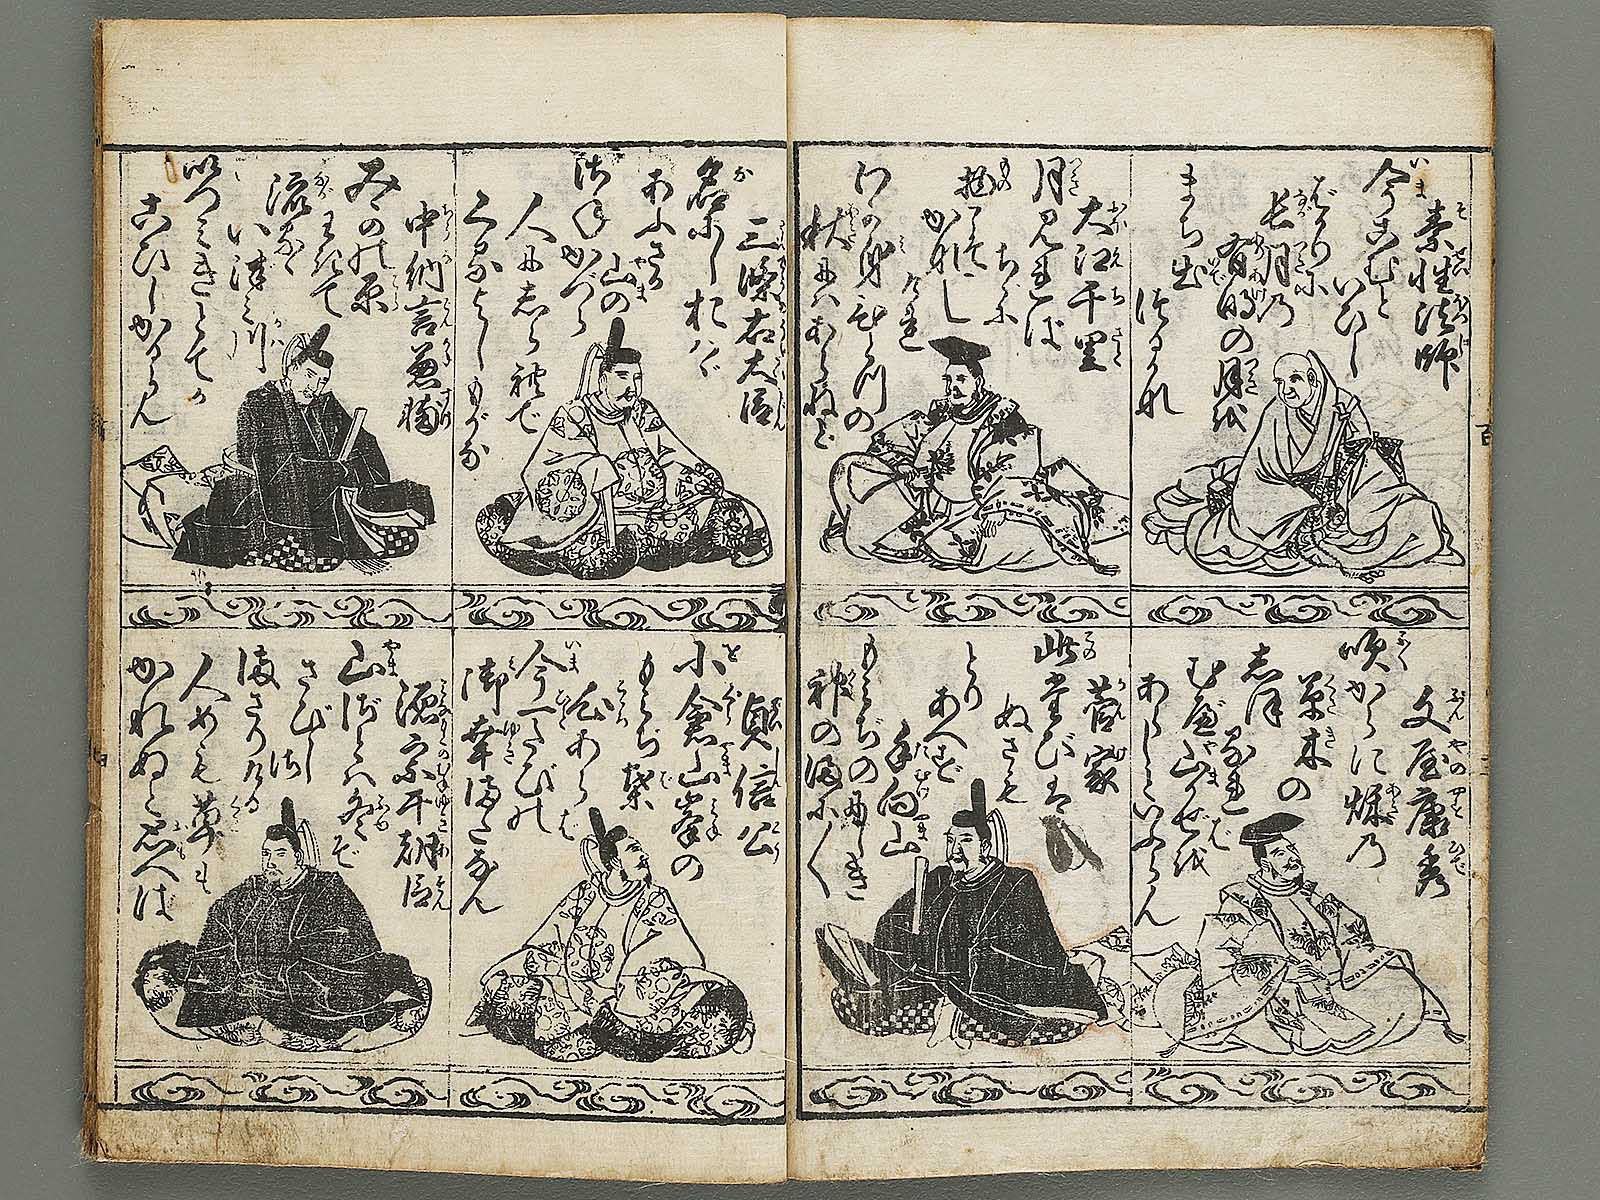 素性法師
今こむと
いひし
ばかりに
長月乃
有明の月を
まち出
つるかな
文屋康秀
吹からに秋乃
草木の
しほ
るれば
むべ山かぜを
あらしといふらん
大江千里
月見れば
ちゞに
物こそ
かなし
けれ
わが身ひとつの
秋にはあらねど
菅家
此たびは
ぬさも
とり
あへず
手向山
もみぢのにしき
神のまに〱
三條右大臣
名にしおはゞ
あふさか
山の
さねかづら
人にしられで
くるよしもがな
貞信公
小倉山峯の
もみぢ葉
心あらば
今一たびの
御幸またなん
中納言兼輔
みかの原
わきて
流るゝ
いづみ川
いつみきとてか
こひしかるらん
源宗于朝臣
山ざとは冬ぞ
さびし
さ
まさりける
人めも草も
かれぬと思へは